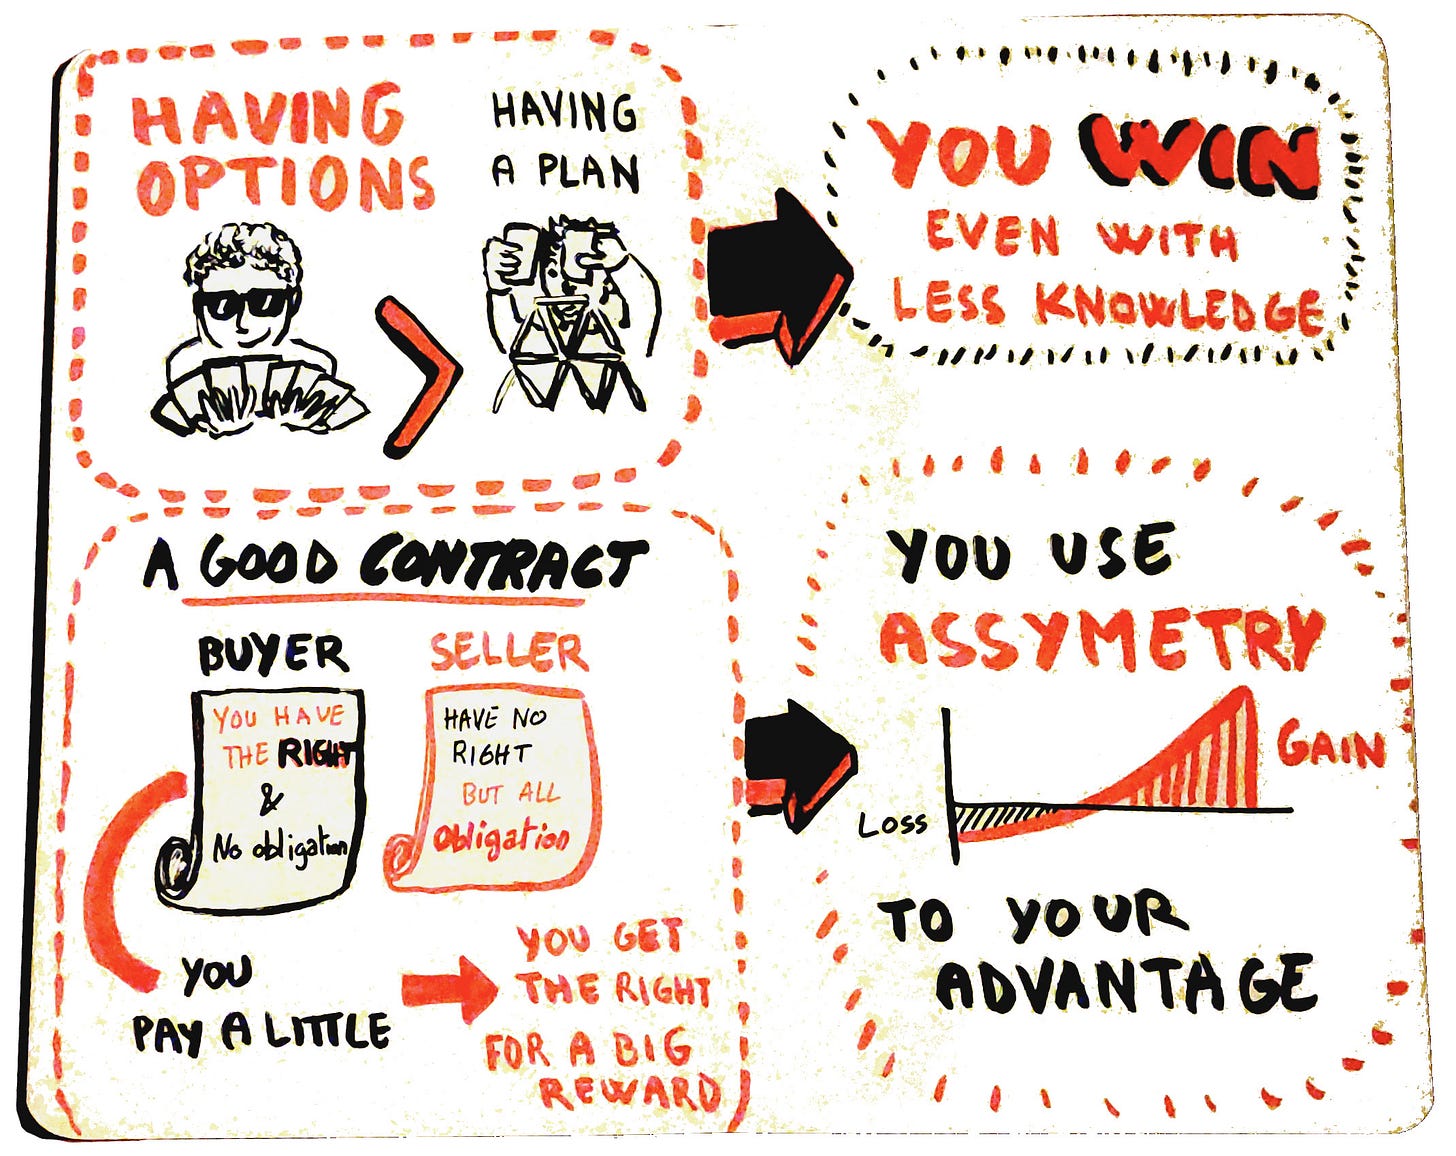 HAVING
OPTIONS
HAVING
A PLAN
YOU WIN
EVEN WITH
LESS KNOWLEDGE
A GOOD CONTRACT
BUYER
YOU HAVE
THE RIGHT
&
No obligation
SELLER
HAVE NO
RIGHT
BUT ALL
Obligation
YOU
PAY A LITTLE
YOU GET
THE RIGHT
FOR A BIG
REWARD
YOU USE
ASSYMETRY
GAIN
LOSS
TO YOUR
ADVANTAGE